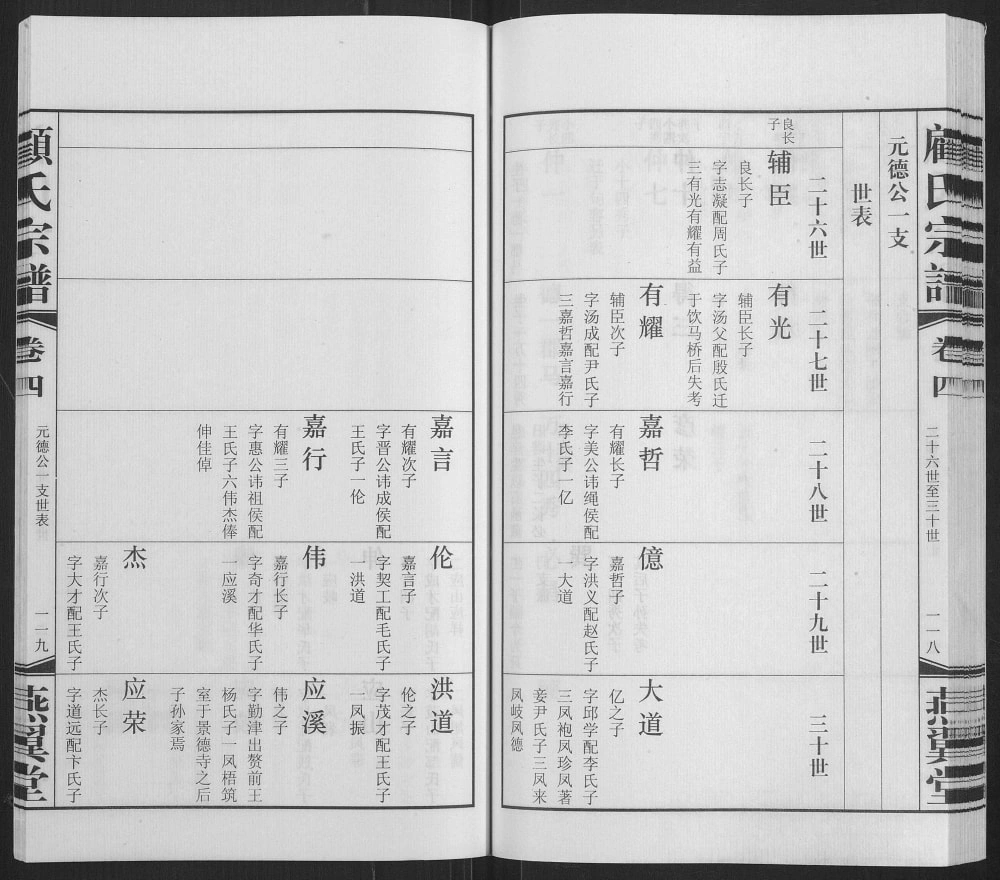 顾氏宗谱
卷四
二十六世至三十世
一一八
燕翼堂
元德公一支
世表
二十六世
二十七世
二十八世
二十九世
三十世
良长
子
辅臣
良长子
字志凝配周氏子
三有光有耀有益
有光
辅臣长子
字汤父配殷氏迁
于饮马桥后失考
有耀
辅臣次子
字汤成配尹氏子
三嘉哲嘉言嘉行
嘉哲
有耀长子
字美公讳绳侯配
李氏子一亿
億
嘉哲子
字洪义配赵氏子
一大道
大道
亿之子
字邱学配李氏子
三凤袍凤珍凤著
妾尹氏子三凤来
凤岐凤德
嘉言
有耀次子
字晋公讳成侯配
王氏子一伦
嘉行
有耀三子
字惠公讳祖侯配
王氏子六伟杰俸
伸佳倬
伦
嘉言子
字契工配毛氏子
一洪道
伟
嘉行长子
字奇才配华氏子
一应溪
杰
嘉行次子
字大才配王氏子
洪道
伦之子
字茂才配王氏子
一凤振
应溪
伟之子
字勤津出赘前王
杨氏子一凤梧筑
室于景德寺之后
子孙家焉
应荣
杰长子
字道远配卞氏子
顾氏宗谱
卷四
元德公一支世表
一一九
燕翼堂